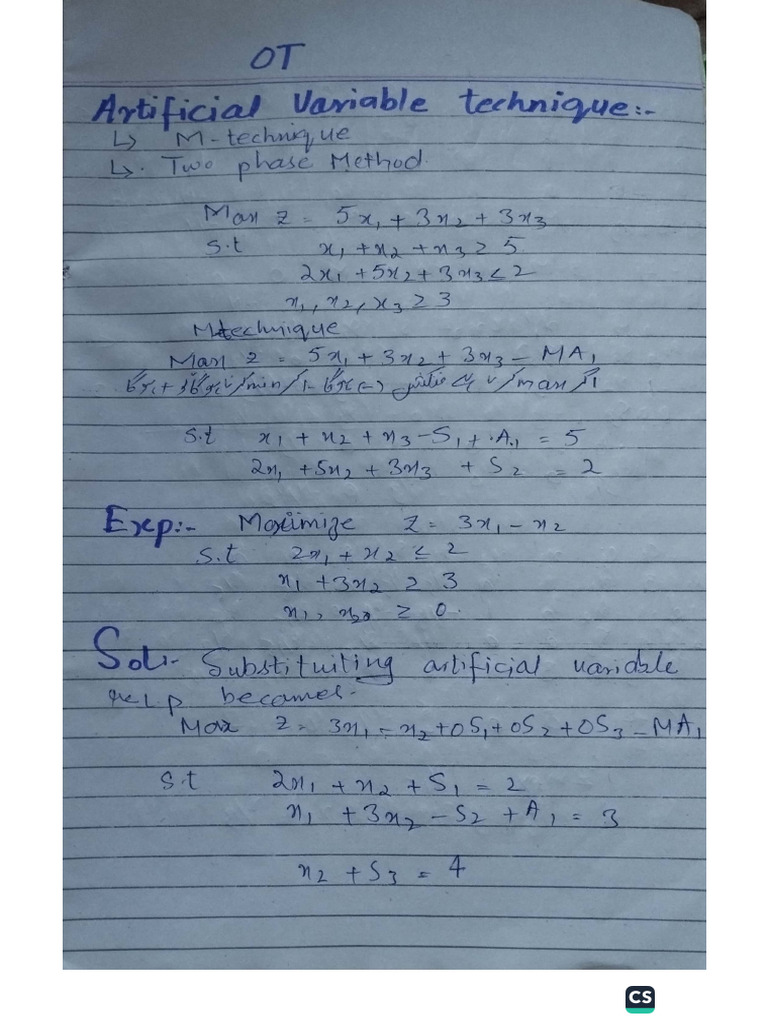 OT
Artificial Variable technique:-
↳ M-technique
↳. Two phase Method.
Max Z = 5x₁ + 3x₂ + 3x₃
S.t x₁ + x₂ + x₃ ≥ 5
2x₁ + 5x₂ + 3x₃ ≤ 2
x₁, x₂, x₃ ≥ 3
M-technique
Max Z = 5x₁ + 3x₂ + 3x₃ - MA₁
اگر max کرنا ہے فنکشن (-) ہوگا - اگر min کرنا ہوگا تو + ہوگا
S.t x₁ + x₂ + x₃ - S₁ + A₁ = 5
2x₁ + 5x₂ + 3x₃ + S₂ = 2
Exp:- Maximize Z = 3x₁ - x₂
S.t 2x₁ + x₂ ≤ 2
x₁ + 3x₂ ≥ 3
x₁, x₂, ≥ 0.
Sol:- Substituiting artificial variable
LP becomes.
Max Z = 3x₁ - x₂ + 0S₁ + 0S₂ + 0S₃ - MA₁
S.t 2x₁ + x₂ + S₁ = 2
x₁ + 3x₂ - S₂ + A₁ = 3
x₂ + S₃ = 4
CS